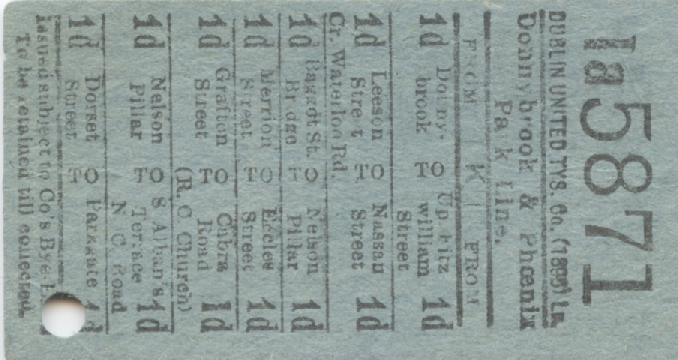 1a5871
DUBLIN UNITED TYS. Co. (1896) Ld.
Donnybrook & Phoenix
Pa k Line.
FROM K FROM
1d Donny- TO Up Fitz 1d
brook william
Street
1d Leeson TO Nassau 1d
Street Street
Cr. Waterloo Rd.
1d Baggot St. TO Nelson 1d
Bridge Pillar
1d Merrion TO Eccles 1d
Street Street
1d Grafton TO Cabra 1d
Street Road
(R.C. Church)
1d Nelson TO S. Alban's 1d
Pillar Terrace
N C Road
1d Dorset TO Parkgate 1d
Street
Issued subject to Co's Bye-L
To be retained till collected.